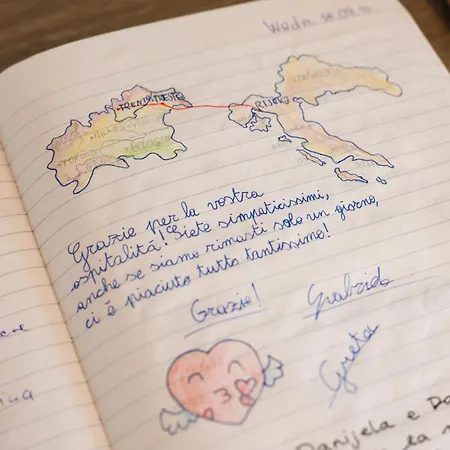 Wedn.
TRENTO TRIESTE
RIJEKA
Grazie per la vostra
ospitalità! Siete simpaticissimi,
anche se siamo rimasti solo un giorno,
ci è piaciuto tutto tantissimo!
Grazie!
Gabriele
Greta
Danijela e
la